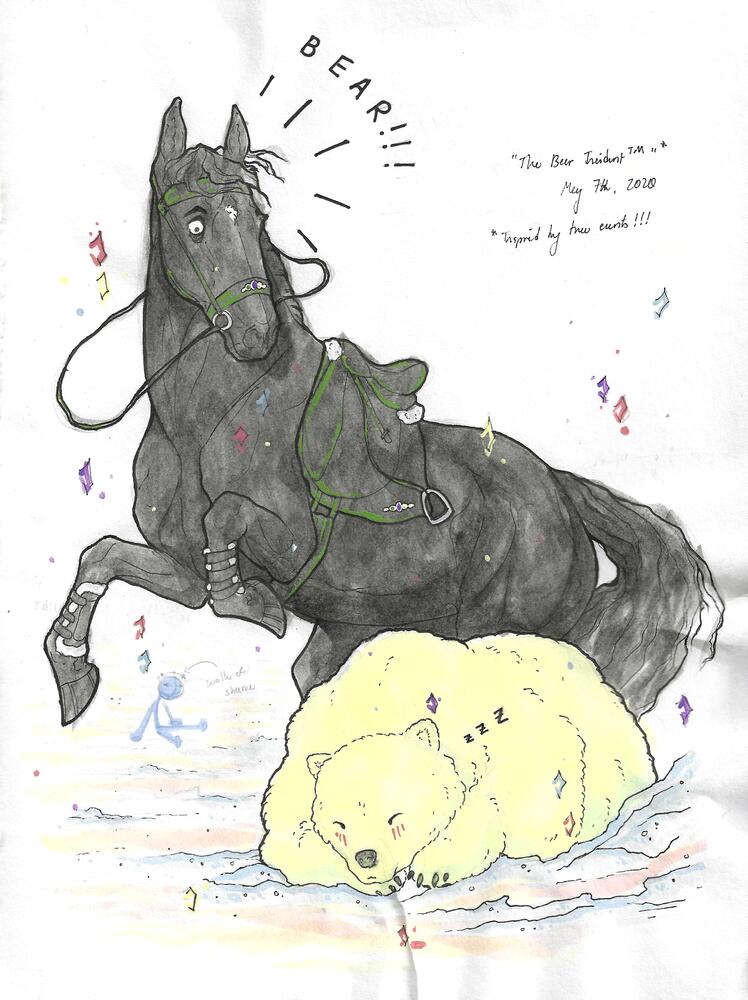 BEAR!!!
"The Bear Incident™"*
May 7th, 2020
*Inspired by true events!!!
walk of
shame
z z z